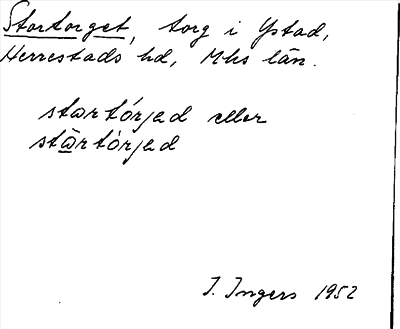 Stortorget, torg i Ystad,
Herrestads hd, Mhs län.
stωrtórjəd eller
stω̄rtórjəd
I. Ingers 1952